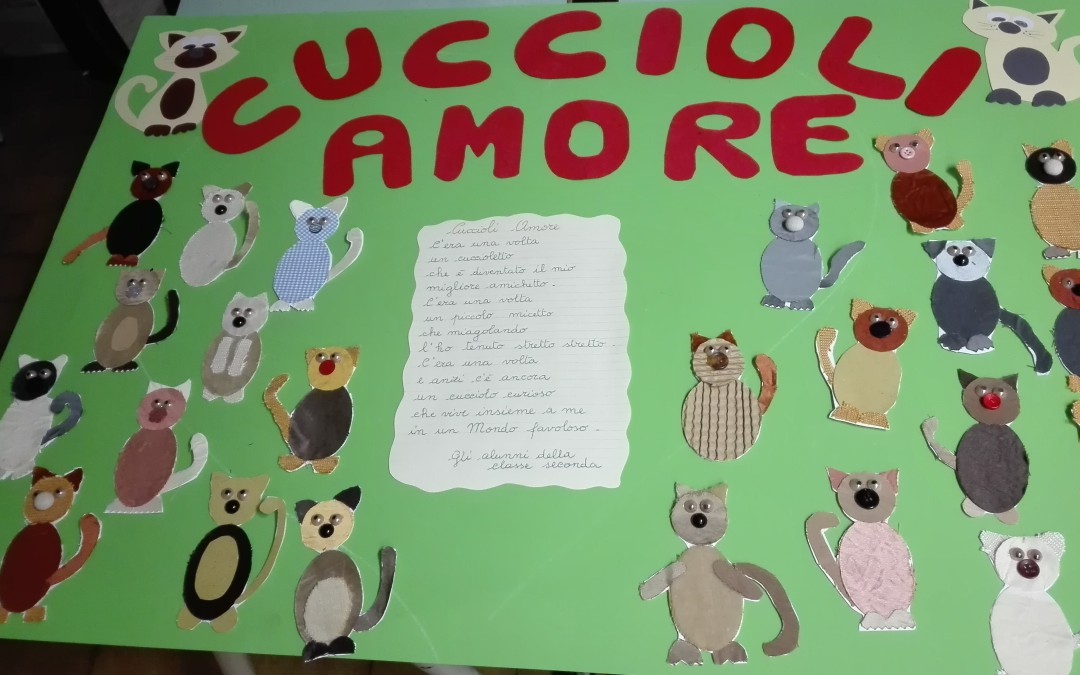 CUCCIOLI
AMORE
Cuccioli Amore
C'era una volta
un cuccioletto
che è diventato il mio
migliore amichetto.
C'era una volta
un piccolo micetto
che miagolando
l'ho tenuto stretto stretto.
C'era una volta
e anzi c'è ancora
un cucciolo curioso
che vive insieme a me
in un Mondo favoloso.
Gli alunni della
classe seconda